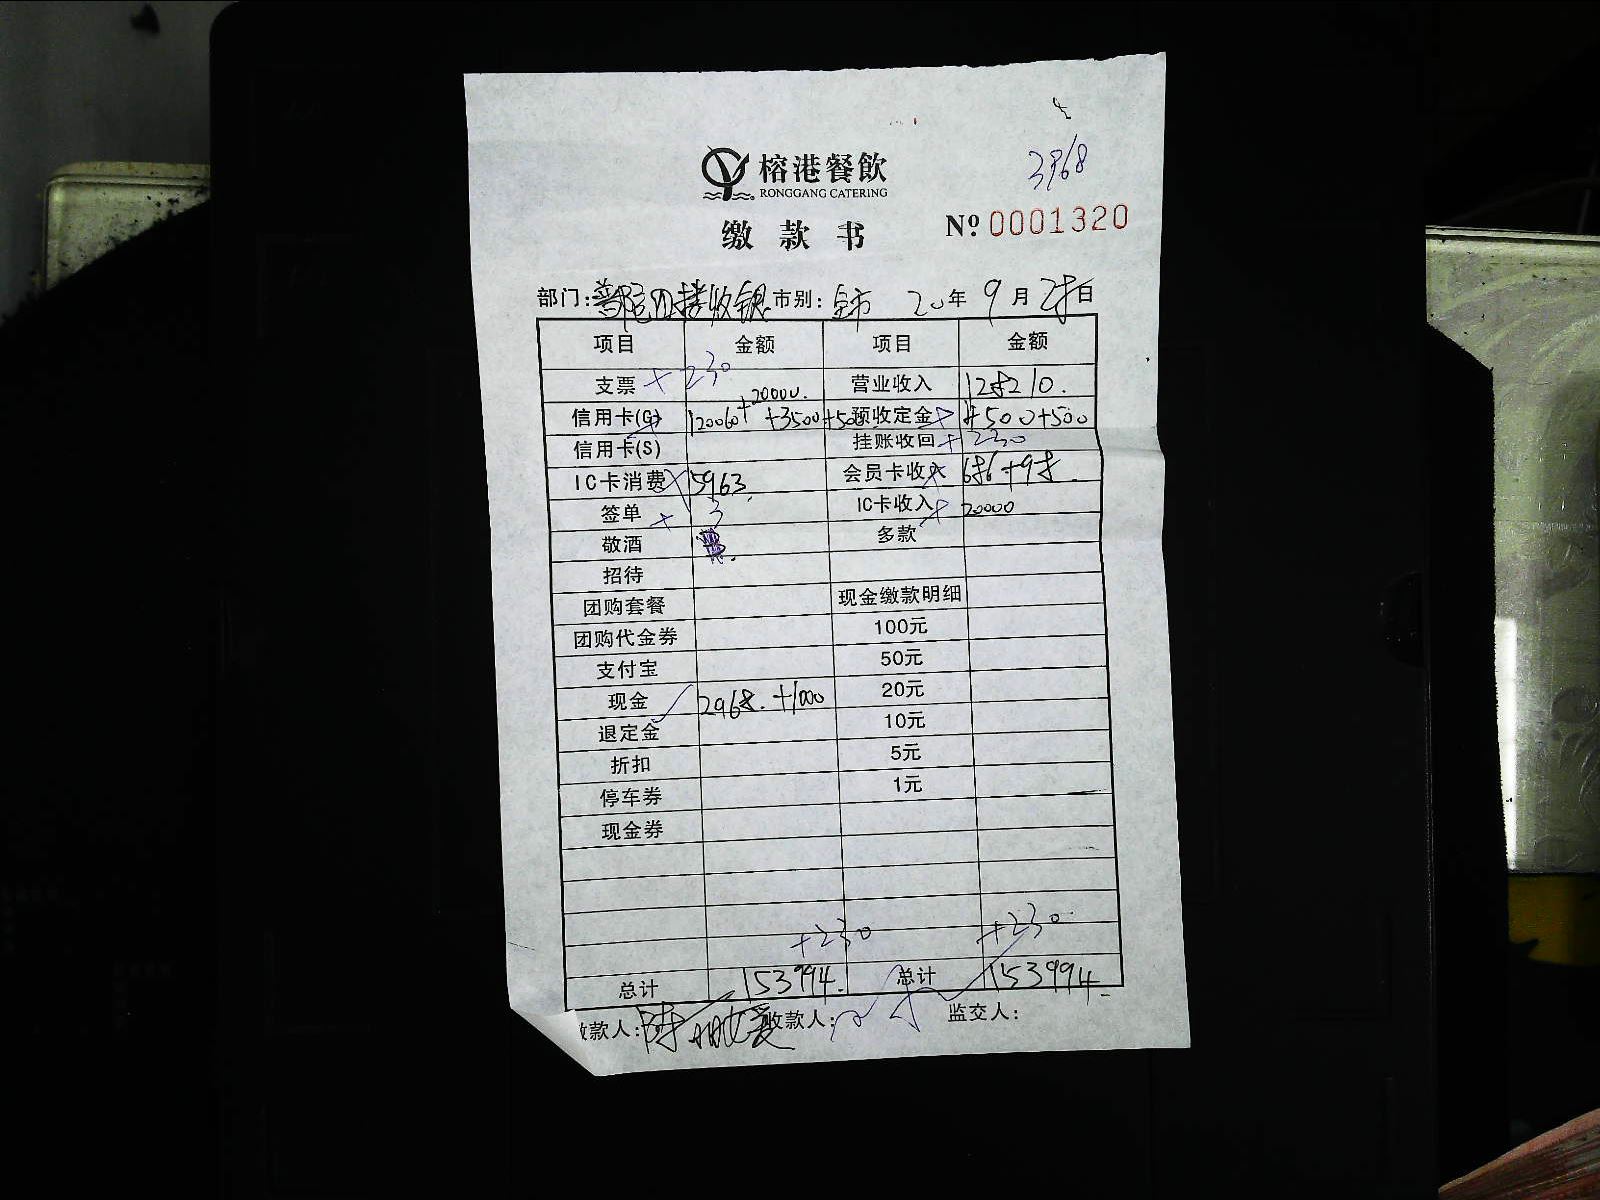 3968
榕港餐飲
RONGGANG CATERING
缴款书
№ 0001320
部门: 市别: 全市 20年 9月 28日
项目 金额 项目 金额
支票 +230 营业收入 128210.
信用卡(G) 120060+20000. +3500+500 预收定金 4500+500
信用卡(S) 挂账收回 +230
IC卡消费 5963. 会员卡收入 686+98.
签单 3 IC卡收入 20000
敬酒 多款
招待
团购套餐 现金缴款明细
团购代金券 100元
支付宝 50元
现金 2968.+1000 20元
退定金 10元
折扣 5元
停车券 1元
现金券
+230 +230
总计 153994. 总计 153994.
款人: 收款人: 监交人: